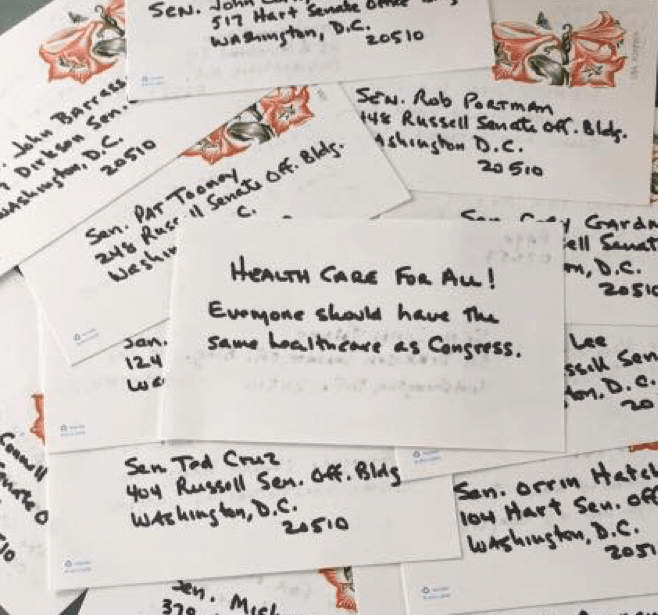 Sen. John
517 Hart Senate Office Bldg
Washington, D.C.
20510
John Barrass
Dirksen Sen.
Washington, D.C.
20510
Sen. Rob Portman
448 Russell Senate Off. Bldg.
Washington D.C.
20510
Sen. Pat Toomey
248 Russell Senate Off. Bldg.
Washin
C.
Sen. Cory Gardn
ell Senat
n, D.C.
20510
HEALTH CARE FOR ALL!
Everyone should have the
same healthcare as Congress.
San.
124
Wa
Lee
ssell Sen
ton, D.C.
20
Connell
Sen. Ted Cruz
404 Russell Sen. Off. Bldg
Washington, D.C.
20510
Sen. Orrin Hatch
104 Hart Sen. Off
Washington, D.C.
2051
Sen. Mich
370